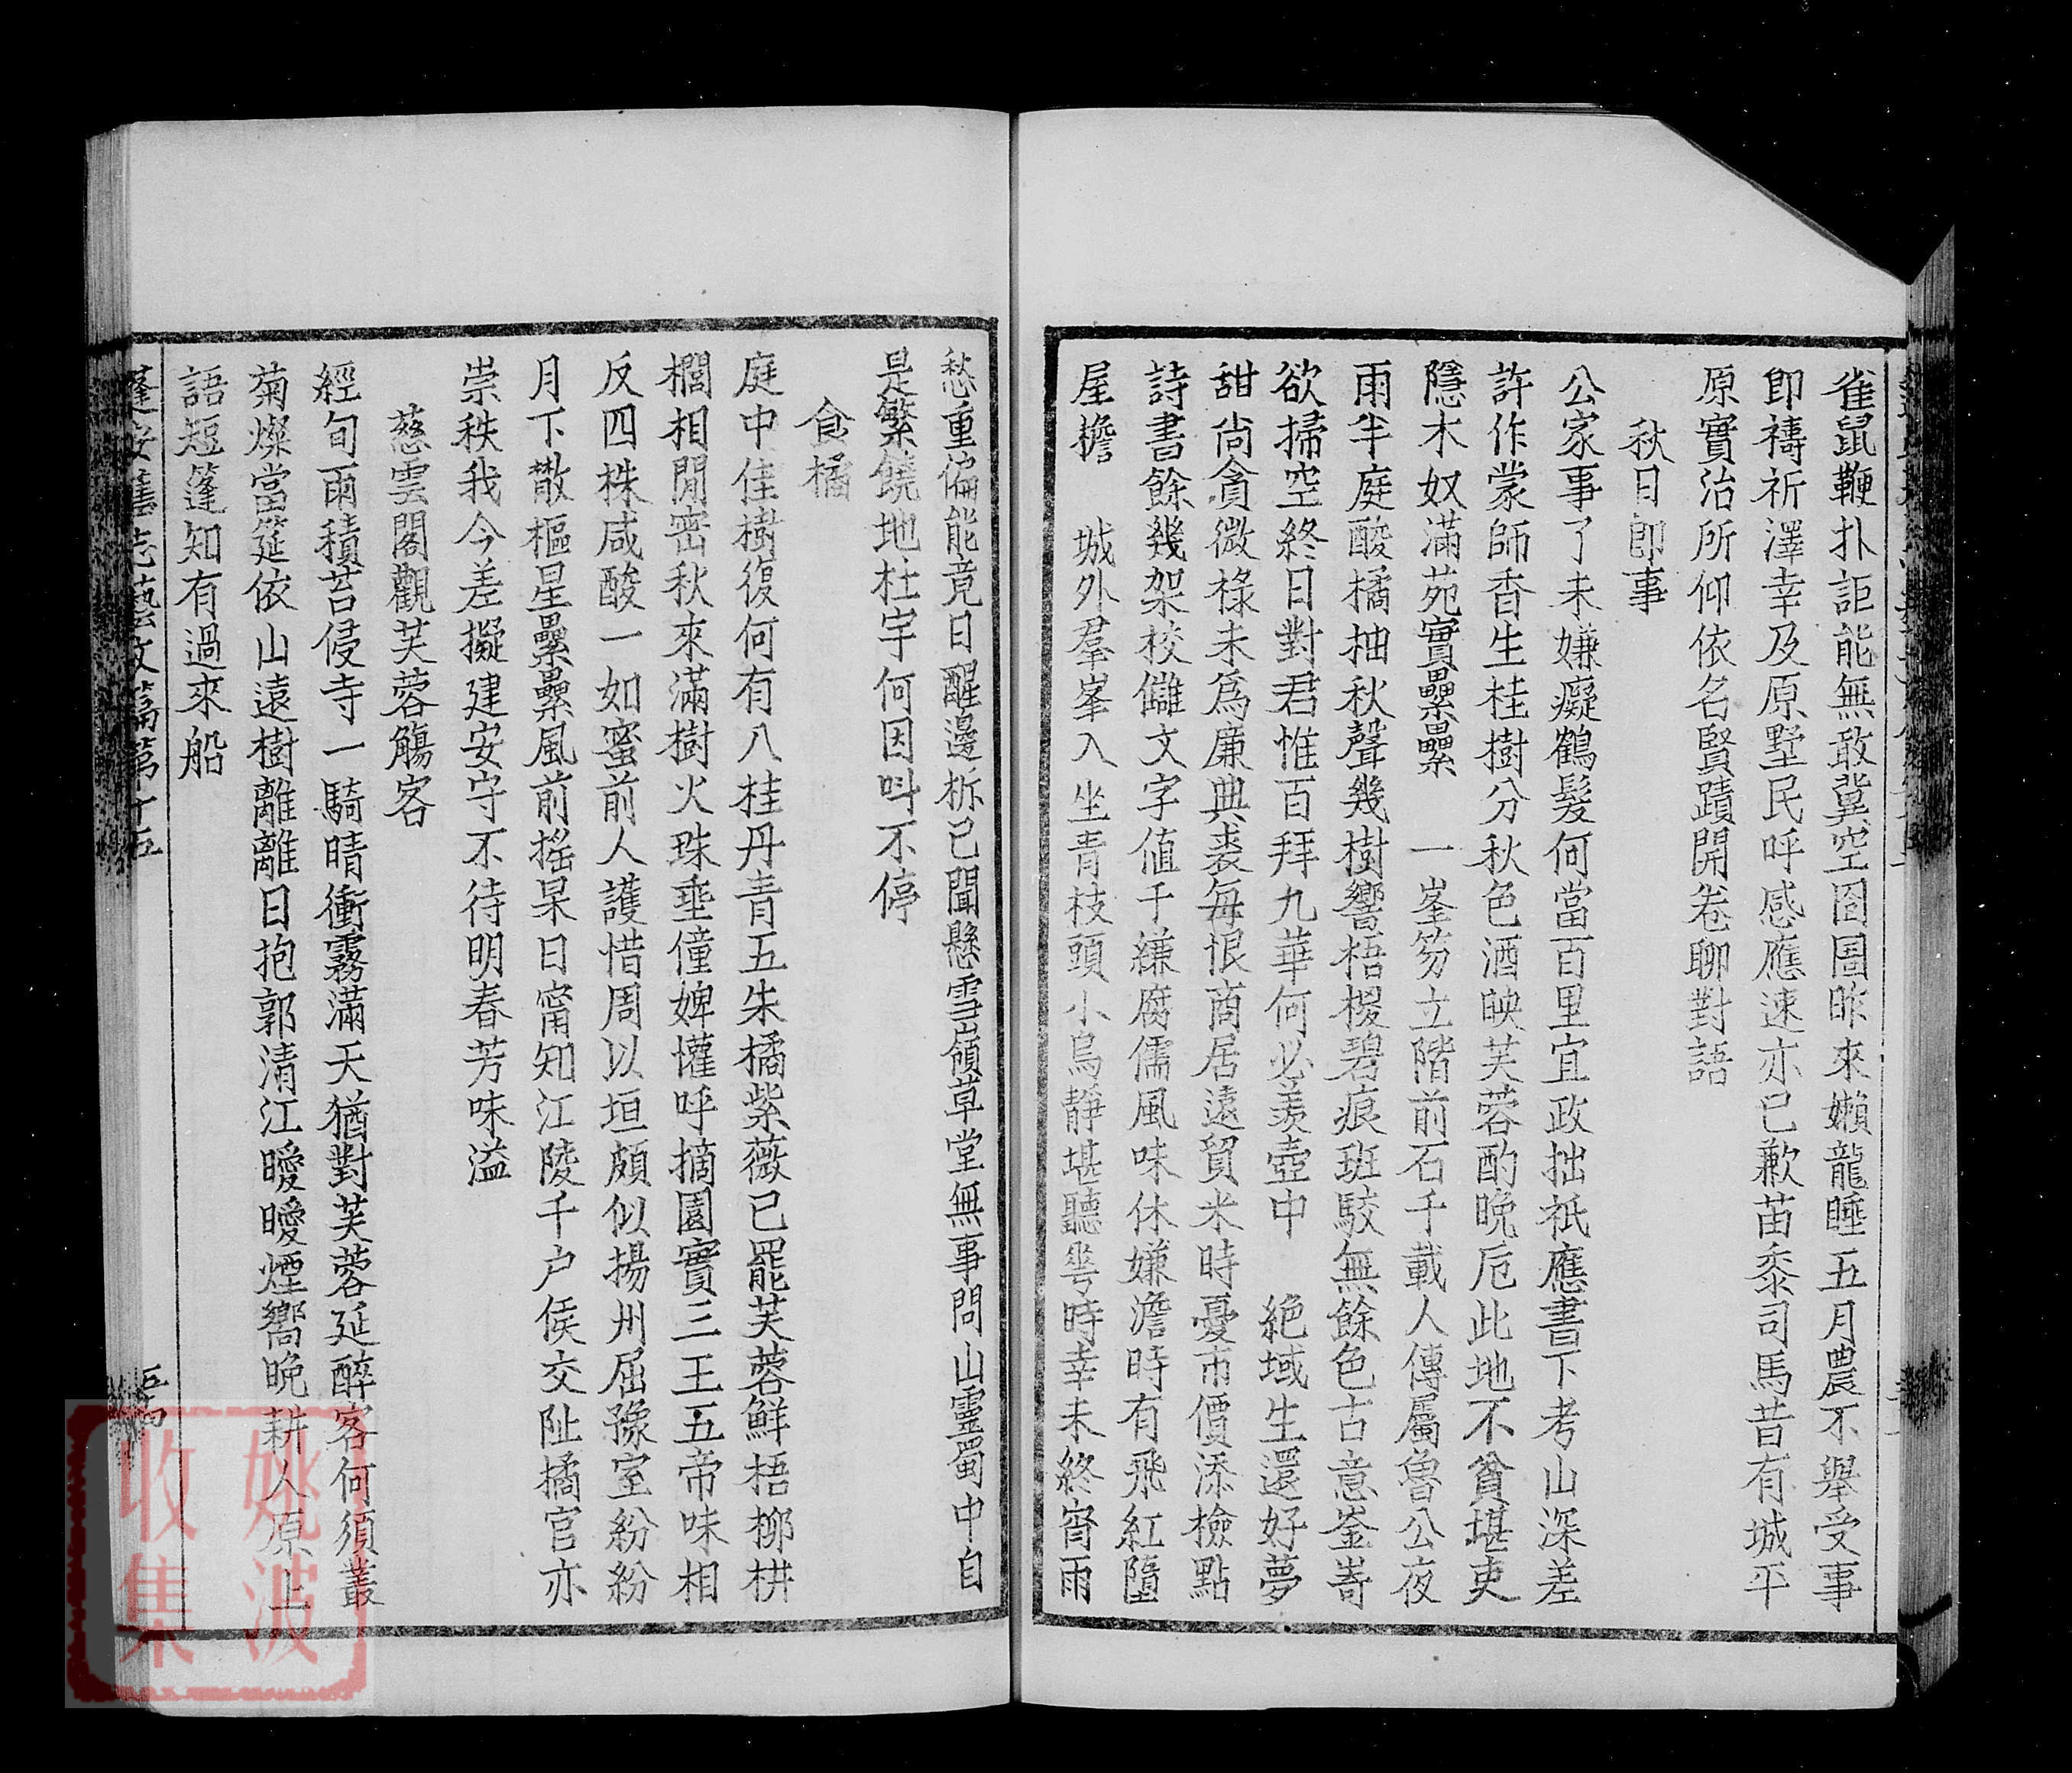 雀鼠鞭扑詎能無敢冀空囹圄昨來嬾龍睡五月農不舉受事
即禱祈澤幸及原墅民呼感應速亦已歉苗黍司馬昔有城平
原實治所仰依名賢蹟開卷聊對語
秋日即事
公家事了未嫌癡鶴髮何當百里宜政拙祇應書下考山深差
許作蒙師香生桂樹分秋色酒映芙蓉酌晚卮此地不貧堪吏
隱木奴滿苑實纍纍 一峯笏立階前石千載人傳屬魯公夜
雨半庭酸橘柚秋聲幾樹響梧椶碧痕班駮無餘色古意崟嵜
欲掃空終日對君惟百拜九華何必羨壺中 絶域生還好夢
甜尚貪微祿未爲廉典裘每恨商居遠貿米時憂市價添檢點
詩書餘幾架校讎文字値千縑腐儒風味休嫌澹時有飛紅墮
屋檐 城外羣峯入坐青枝頭小鳥靜堪聽㟧時幸未終宵雨
愁重偏能竟日醒邊柝已聞懸雪嶺草堂無事問山靈蜀中自
是繁饒地杜宇何因叫不停
食橘
庭中佳樹復何有八桂丹青五朱橘紫薇已罷芙蓉鮮梧桞栟
櫚相閒密秋來滿樹火珠垂僮婢懽呼摘園實三王五帝味相
反四株咸酸一如蜜前人護惜周以垣頗似揚州屈豫室紛紛
月下散樞星纍纍風前搖杲日甯知江陵千户侯交阯橘官亦
崇秩我今差擬建安守不待明春芳味溢
慈雲閣觀芙蓉觴客
經旬雨積苔侵寺一騎晴衝霧滿天猶對芙蓉延醉客何須叢
菊燦當筵依山遠樹離離日抱郭清江曖曖煙嚮晚耕人原上
語短篷知有過來船
蓬安縣志藝文篇第十五
五四
姚波
收集